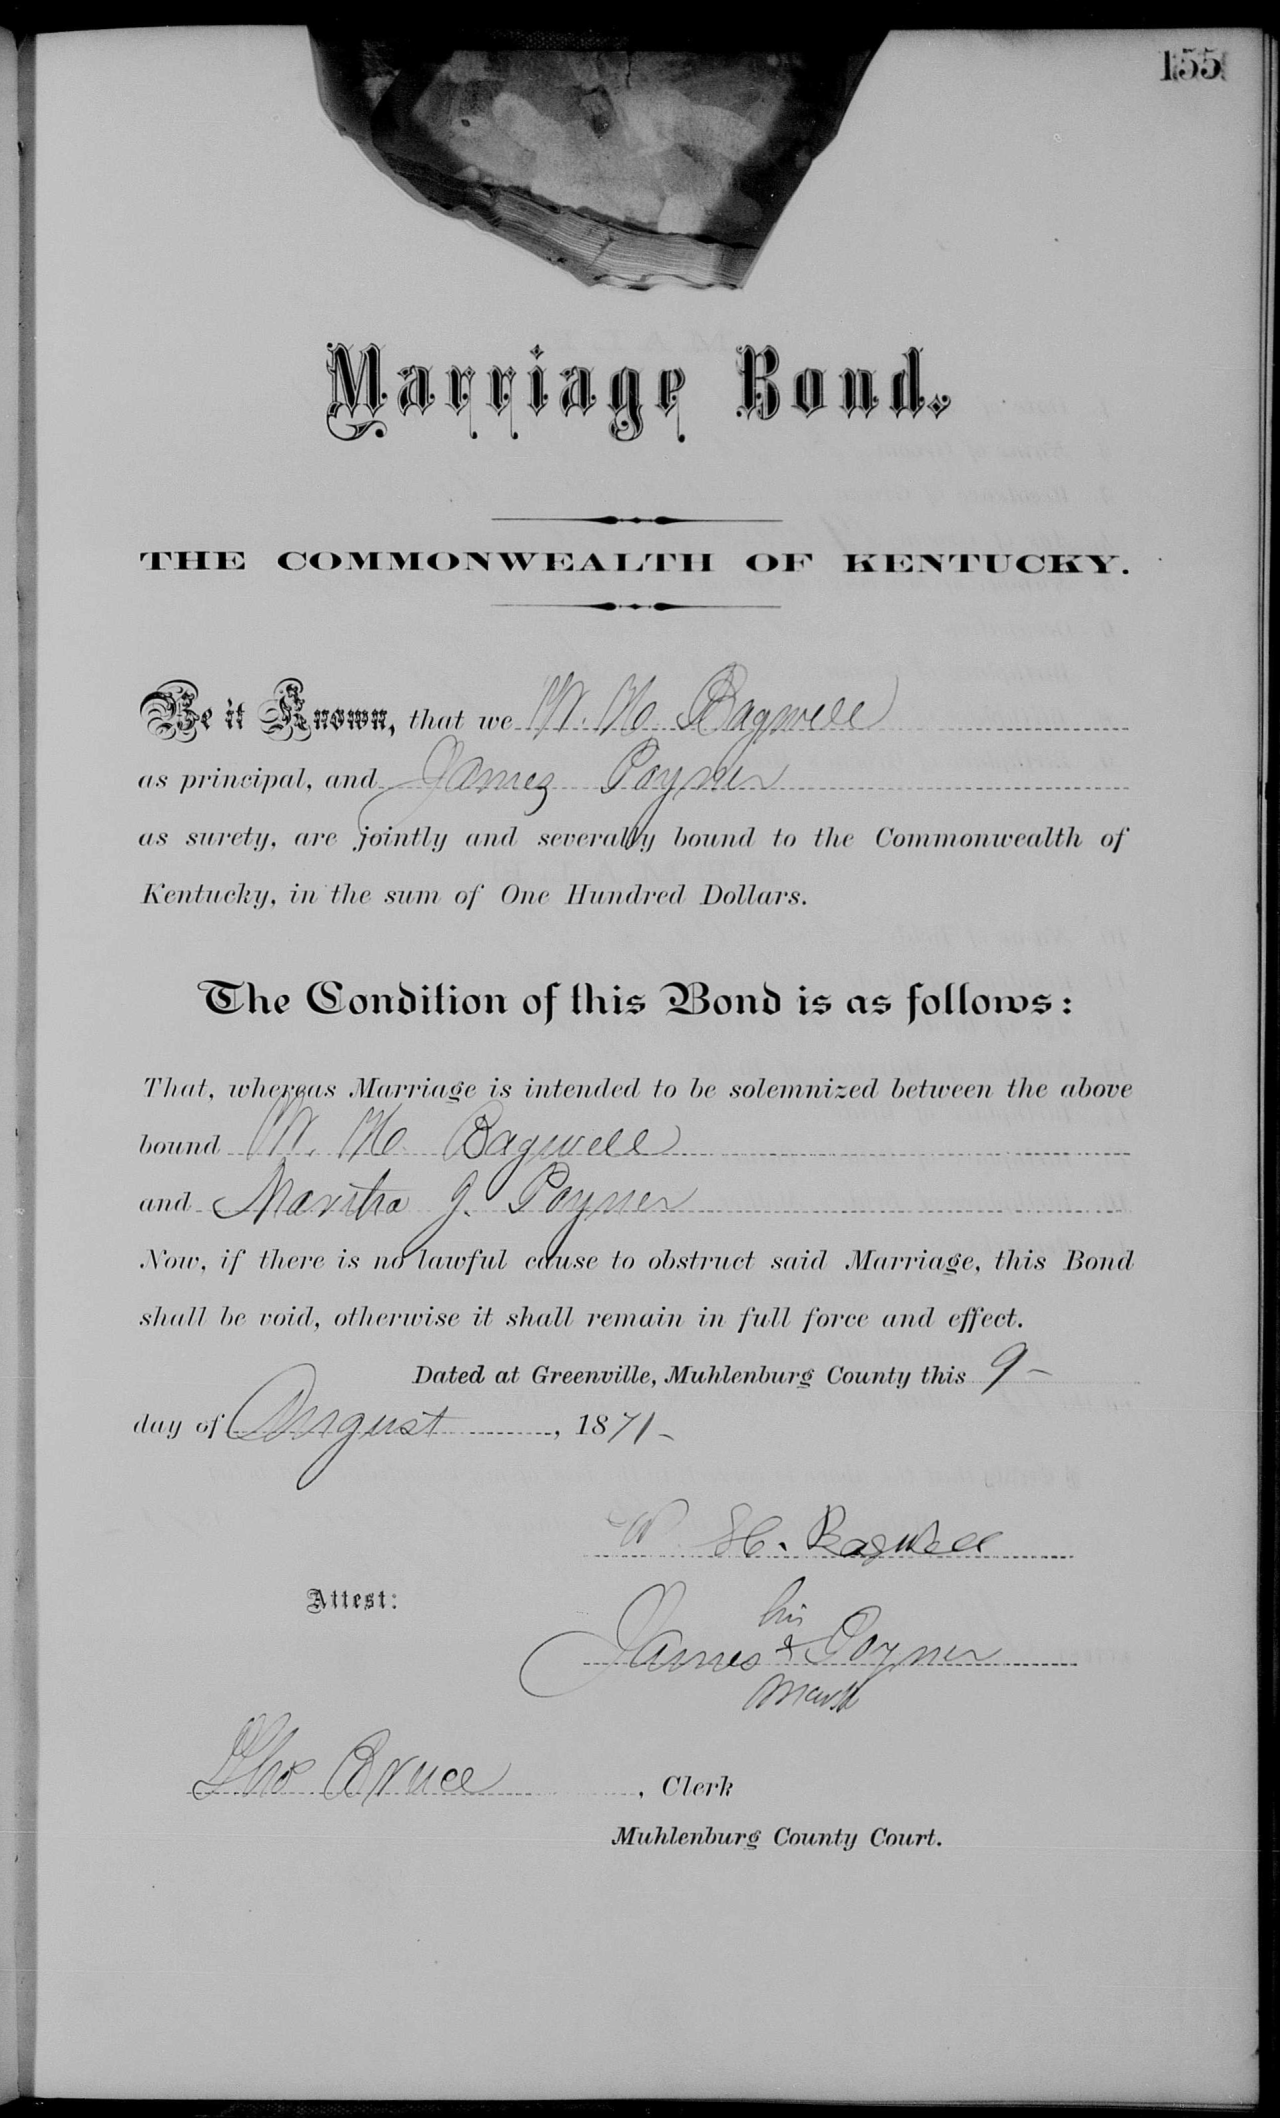 155
Marriage Bond.
THE COMMONWEALTH OF KENTUCKY.
Be it Known, that we W. H. Bagwell
as principal, and James Poyner
as surety, are jointly and severally bound to the Commonwealth of
Kentucky, in the sum of One Hundred Dollars.
The Condition of this Bond is as follows:
That, whereas Marriage is intended to be solemnized between the above
bound W. H. Bagwell
and Martha J. Poyner
Now, if there is no lawful cause to obstruct said Marriage, this Bond
shall be void, otherwise it shall remain in full force and effect.
Dated at Greenville, Muhlenburg County this 9-
day of August, 1871-
W H. Bagwell
Attest:
his
James x Poyner
mark
Thos Bruce, Clerk
Muhlenburg County Court.